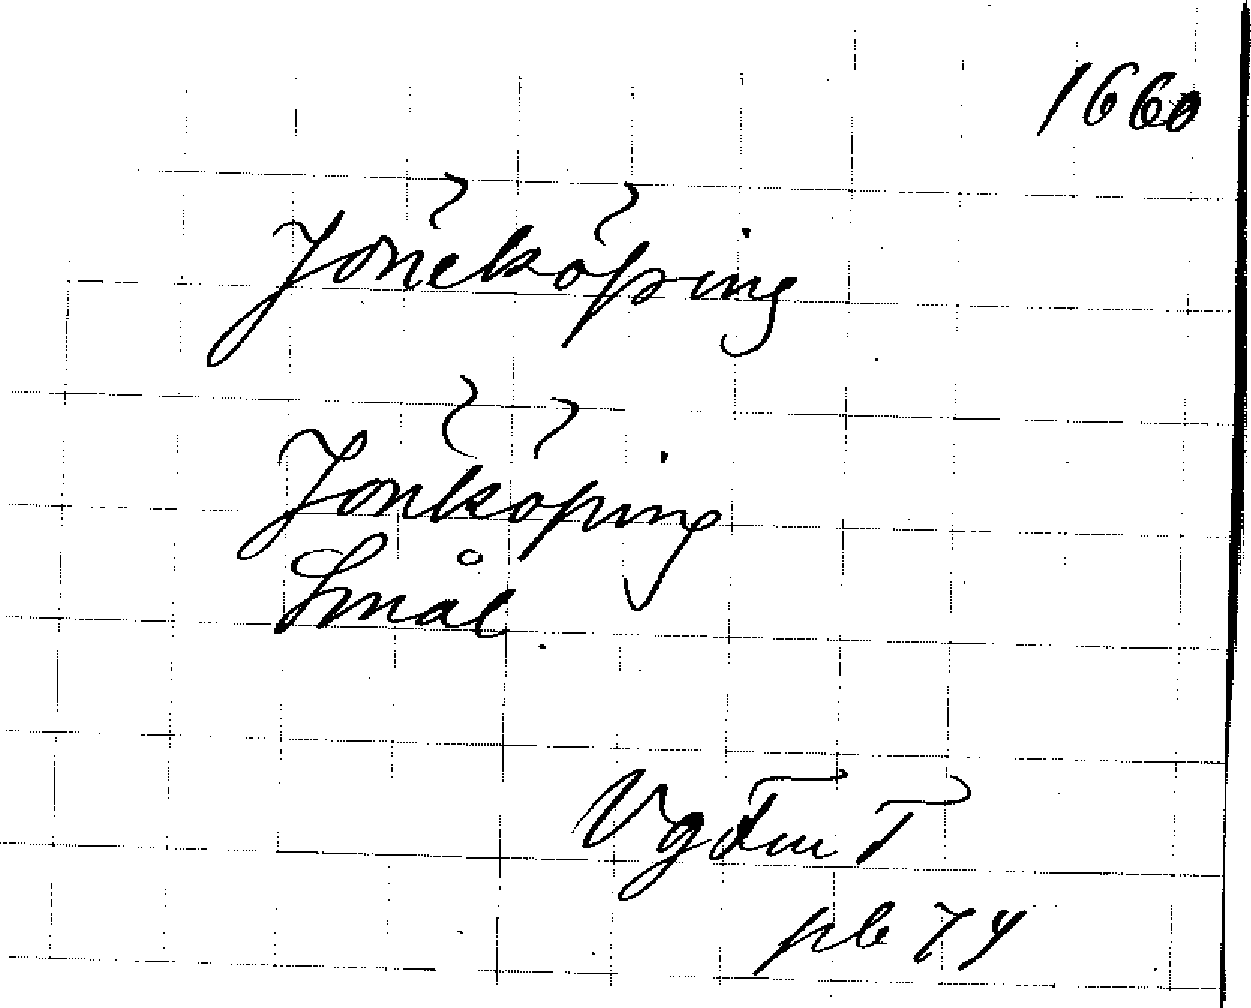 1660
Jöneköping
Jönköping
Smål.
Vg Fm T
pb 74